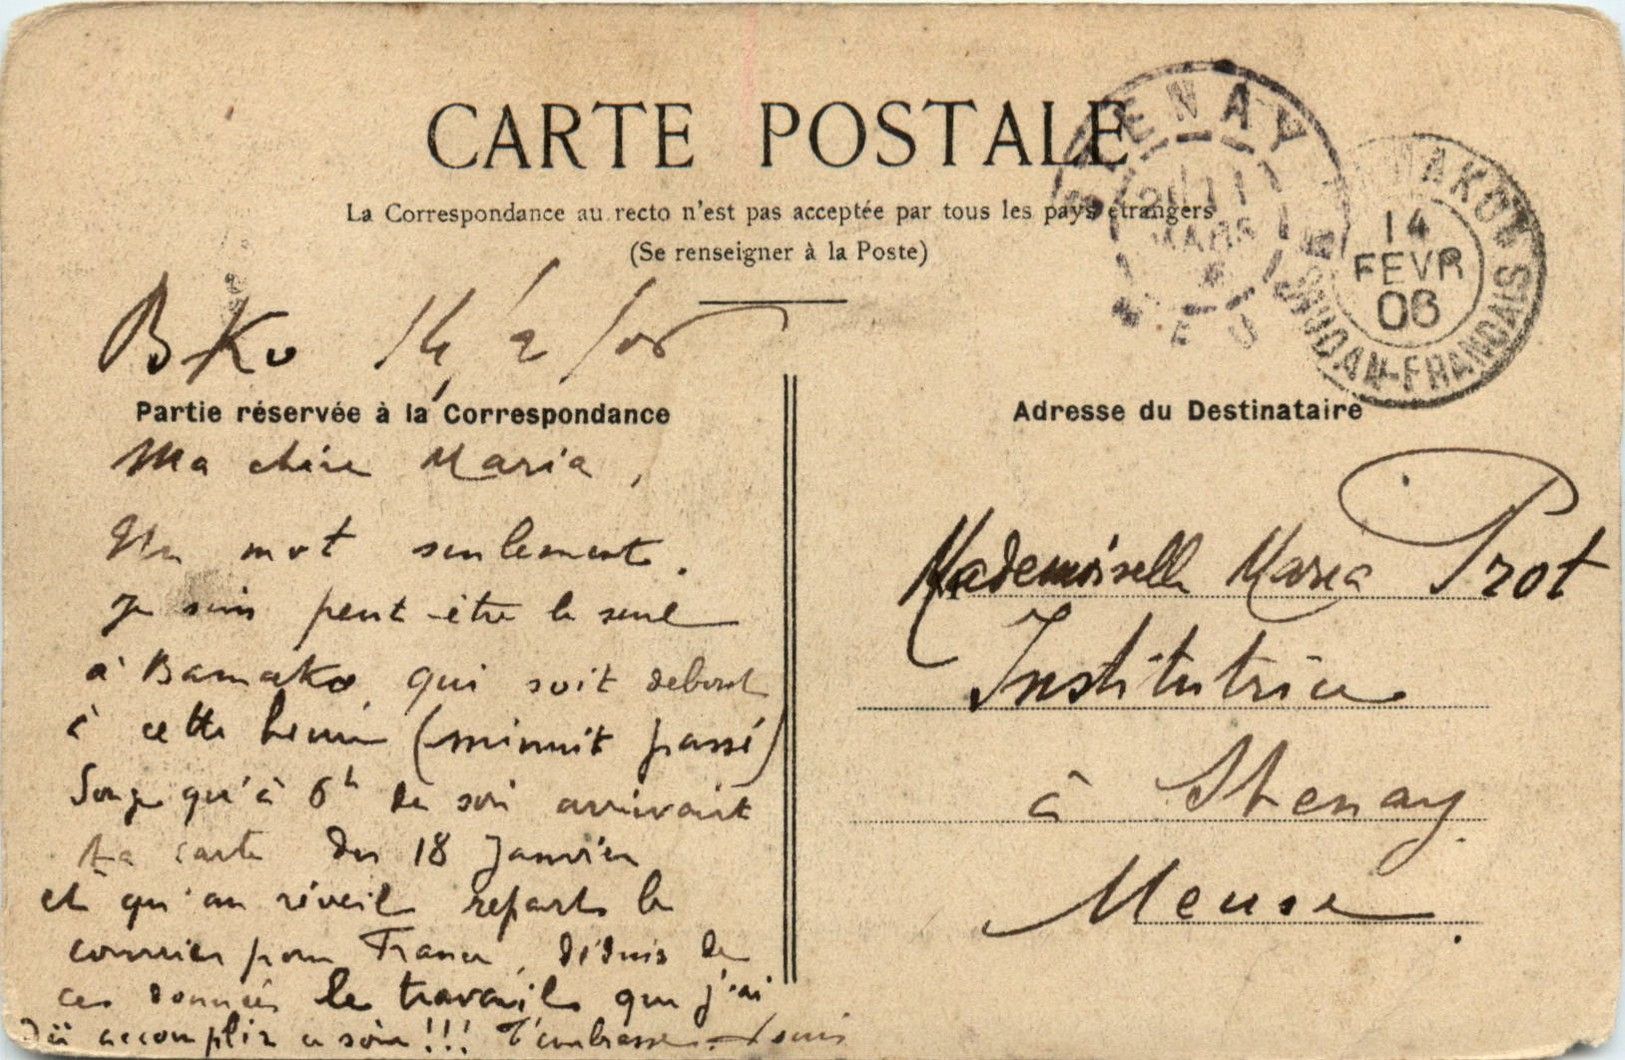 CARTE POSTALE
La Correspondance au recto n'est pas acceptée par tous les pays étrangers
(Se renseigner à la Poste)
STENAY
MARS
14
FEVR
06
SOUDAN-FRANÇAIS
BKo 14/2/06
Partie réservée à la Correspondance
Adresse du Destinataire
Ma chère Maria,
Un mot seulement.
Je suis peut-être le seul
à Bamako qui soit debout
à cette heure (minuit passé)
Songe qu'à 6h du soir arrivait
ta carte du 18 Janvier
et qu'au réveil repart le
courrier pour France, déduis de
ces données le travail que j'ai
dû accomplir ce soir!!! T'embrasse. Louis
Mademoiselle Maria Prot
Institutrice
à Stenay
Meuse.